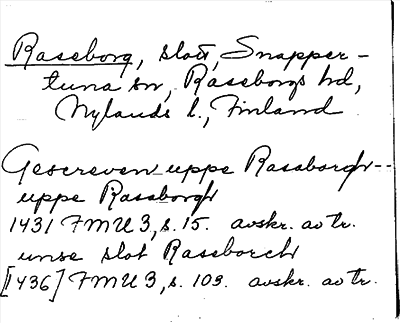 Raseborg, slott, Snapper-
tuna sn, Raseborgs hd,
Nylands l., Finland
Gescreven uppe Rassborgh--
uppe Rassborgh
1431 FMU 3, s. 15. avskr. av tr.
unse slot Rasborch
[1436] FMU 3, s. 103. avskr. av tr.